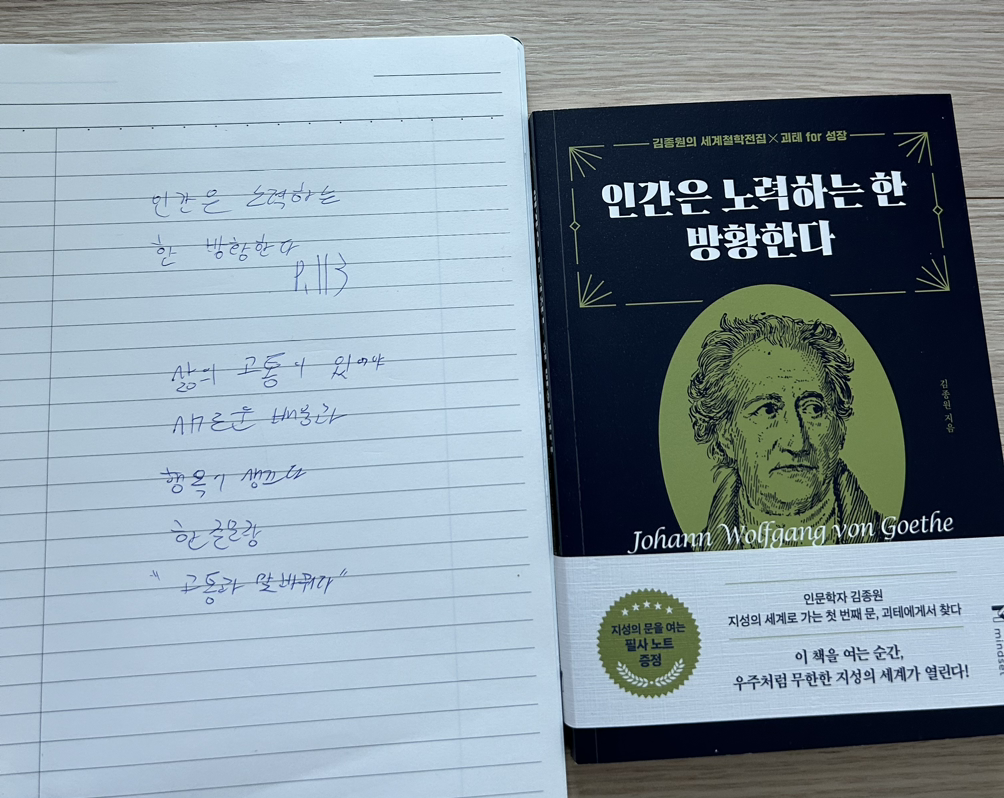 인간은 노력하는
한 방황한다
P.113
삶의 고통이 있어야
새로운 배움과
행복이 생긴다
한 줄
"고통과
김종원의 세계철학전집×괴테 for 성장
인간은 노력하는 한
방황한다
김종원 지음
Johann Wolfgang von Goethe
지성의 문을 여는
필사 노트
증정
인문학자 김종원
지성의 세계로 가는 첫 번째 문, 괴테에게서 찾다
이 책을 여는 순간,
우주처럼 무한한 지성의 세계가 열린다!
mindset